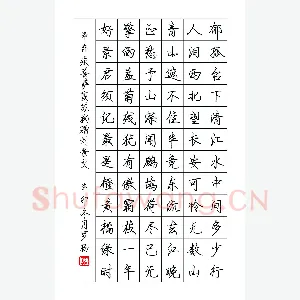 郁孤台下清江水中间多少行
人泪西北望长安可怜无数山
青山遮不住毕竟东流去江晚
正愁予山深闻鹧鸪荷尽已无
擎雨盖菊残犹有傲霜枝一年
好景君须记最是橙黄橘绿时
辛弃疾菩萨蛮苏轼赠刘景文 冬月